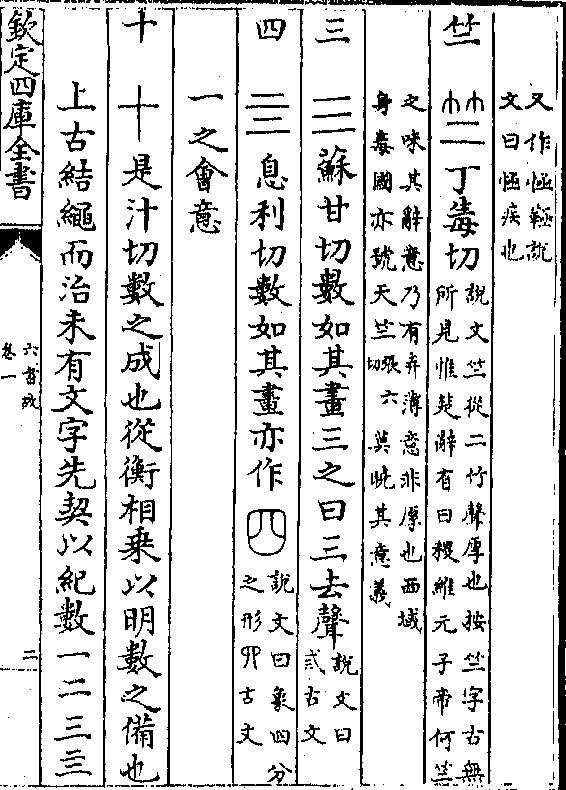 又作㥛說
文曰㥛疾也
竺 丁毒切說文竺從二竹聲厚也按竺字古無
所見惟楚辭有曰稷維元子帝何竺
之味其辭意乃有弃薄意非厚也西域
身毒國亦號天竺張六切莫曉其意義
三 三 蘇甘切數如其畫三之曰三去聲說文曰
弎古文
四 亖 息利切數如其畫亦作四說文曰象四分
之形𦉭古文
一之會意
十 十 是汁切數之成也從衡相乗以明數之備也
上古結繩而治未有文字先契以紀數一二三亖
欽定四庫全書
六書故
卷一
二